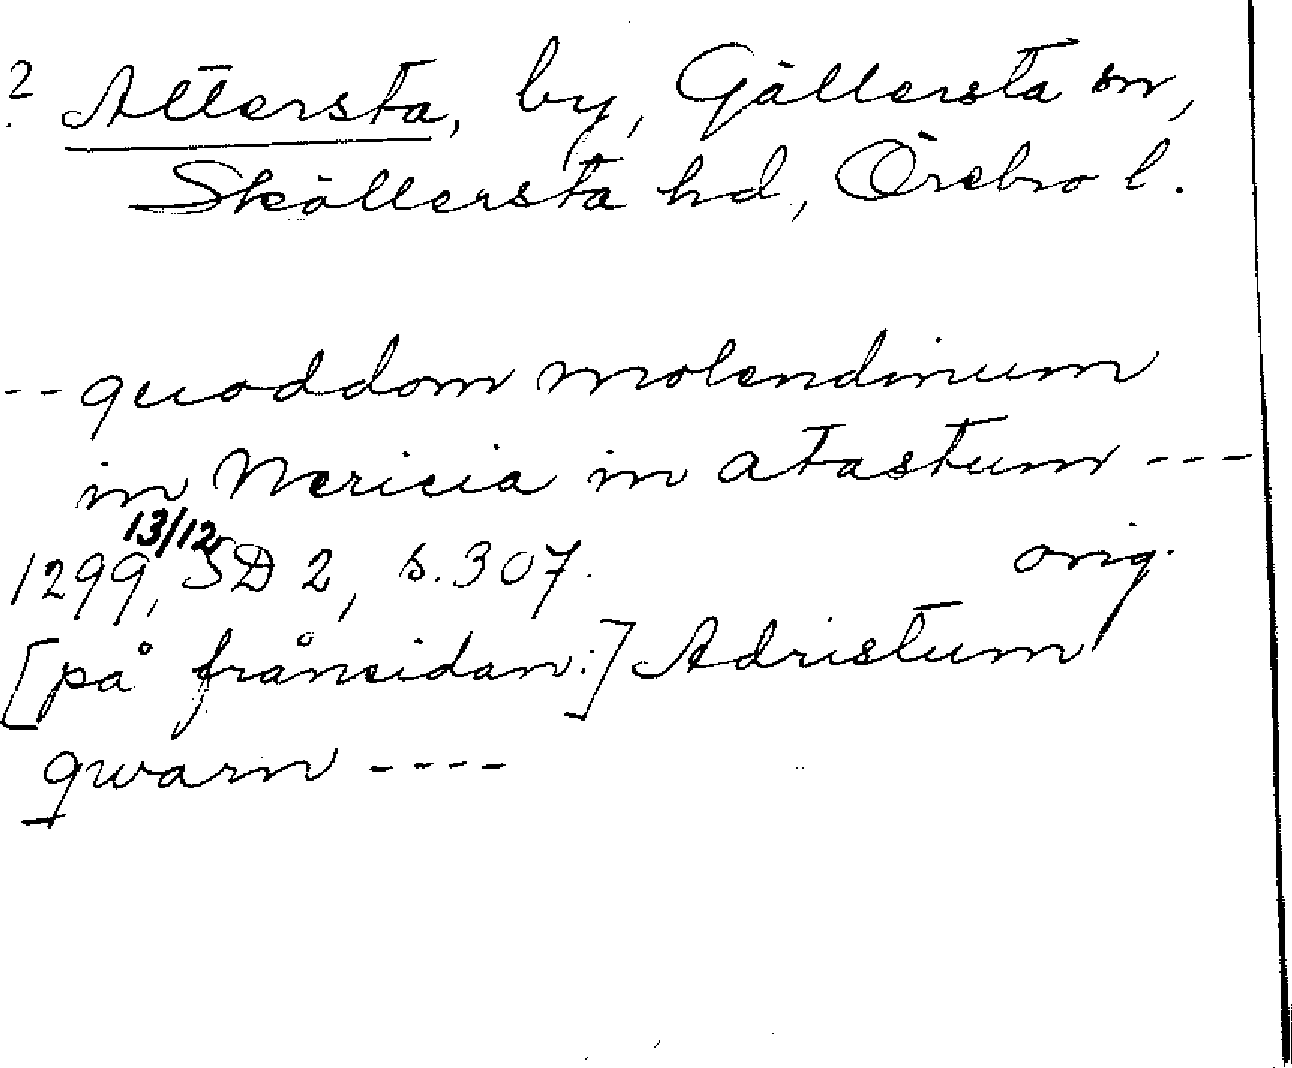 ? Attersta, by, Gällersta sn,
Sköllersta hd, Örebro l.
-- quoddom molendinum
in Nericia in atastum ---
1299 13/12, SD 2, s. 307. orig.
[på frånsidan:] Adristum
qwarn ----